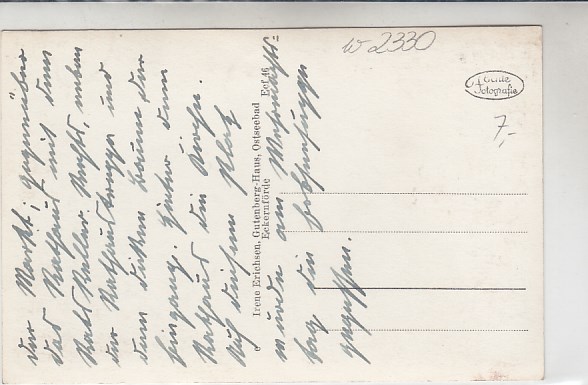 der Markt, gegenüber
das Rathaus mit dem
Ratskeller rechts, neben
der Rathaustreppe und
dem dicken Baum der
Eingang. Hinter dem
Rathaus die Kirche.
Auf diesem Platz
wurde am Wehrmachts=
tag die Erbsensuppe
gegessen.
Irene Erichsen, Gutenberg-Haus, Ostseebad
Eckernförde Ecf.46
w 2330
Echte
Fotografie
7,-